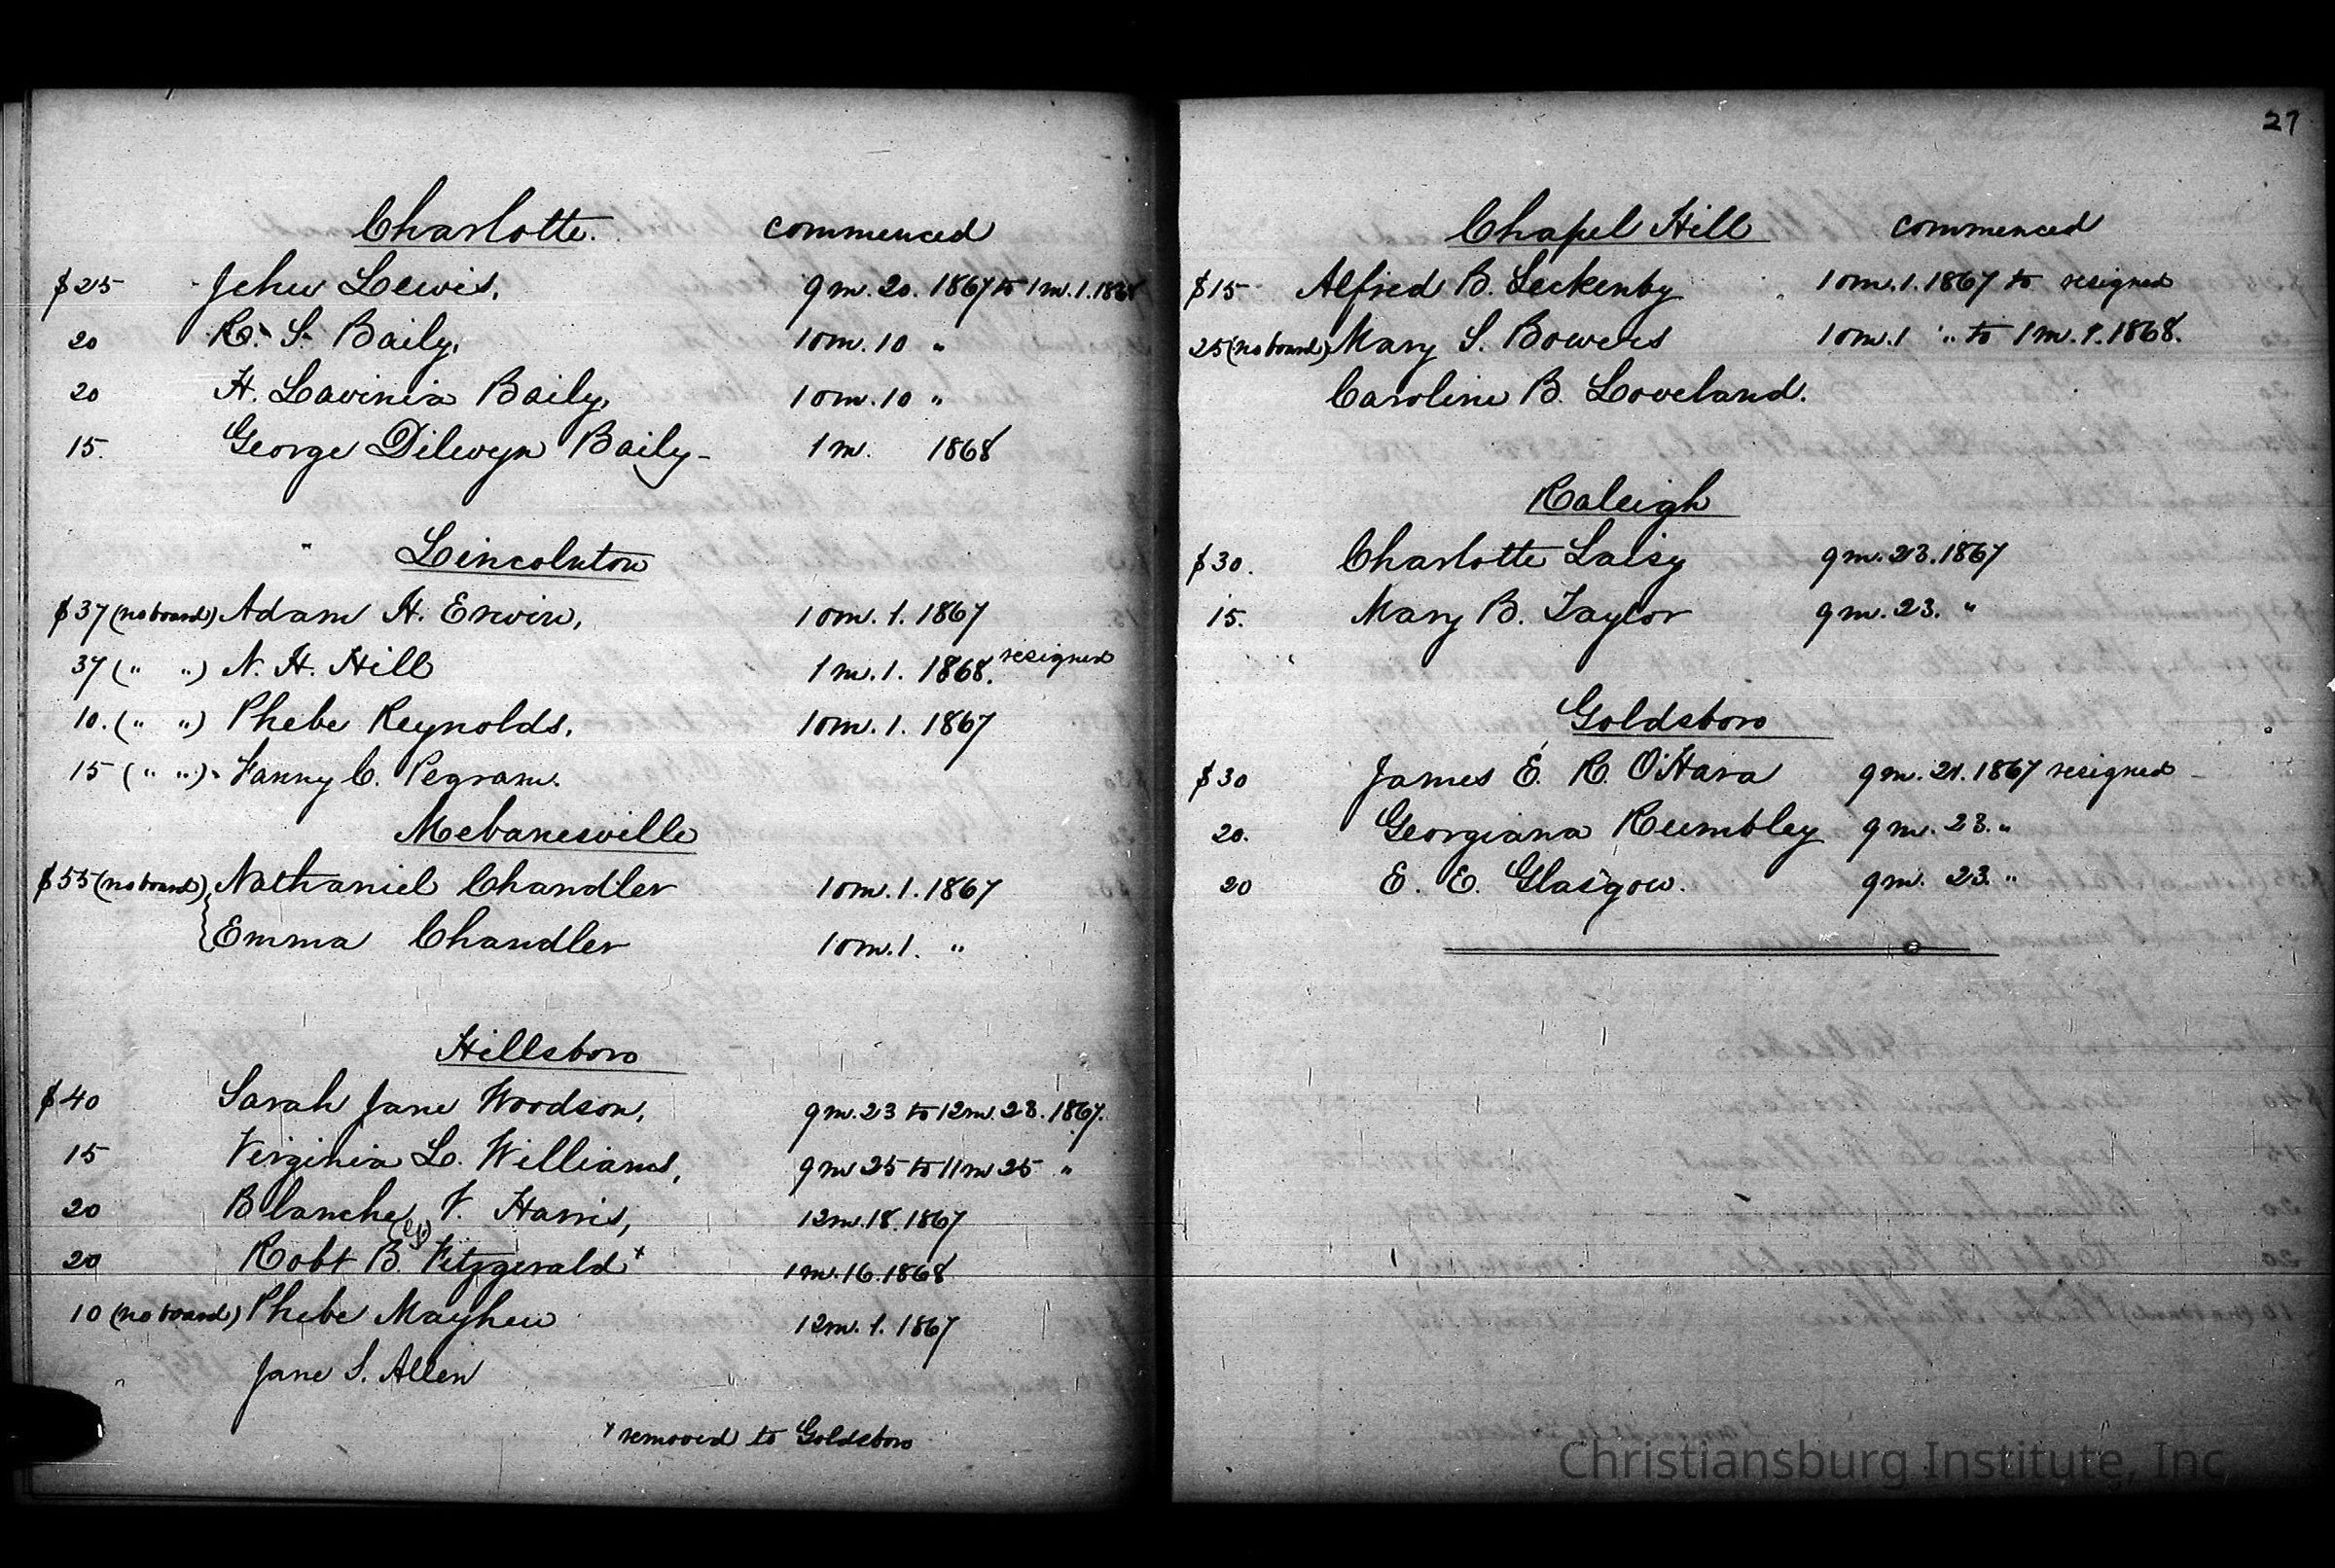 Charlotte. commenced
$25 Jehu Lewis, 9m. 20. 1867 to 1m. 1. 1868
20 R. S. Baily, 10m. 10 "
20 H. Lavinia Baily, 10m. 10 "
15. George Dilwyn Baily - 1m. 1868
Lincolnton
$37 (no board) Adam H. Erwin, 10m. 1. 1867
37 (" ") N. H. Hill 1m. 1. 1868. resigned
10. (" ") Phebe Reynolds, 10m. 1. 1867
15 (" ") Fanny C. Pegram.
Mebanesville
$55 (no board) Nathaniel Chandler 10m. 1. 1867
Emma Chandler 10m. 1. "
Hillsboro
$40 Sarah Jane Woodson, 9m. 23 to 12m. 23. 1867.
15 Virginia L. Williams, 9m 25 to 11m 25 "
20 Blanche V. Harris, 12m. 18. 1867
20 Robt B. Fitzgerald x 1m. 16. 1868
10 (no board) Phebe Mayhew 12m. 1. 1867
Jane S. Allen
x removed to Goldsboro
27
Chapel Hill commenced
$15 Alfred B. Leckenby 10m. 1. 1867 to resigned
25 (no board) Mary S. Bowers 10m. 1 " to 1m. 1. 1868.
Caroline B. Loveland.
Raleigh
$30. Charlotte Laisy 9m. 23. 1867
15. Mary B. Taylor 9m. 23. "
Goldsboro
$30 James E. R. O'Hara 9m. 21. 1867 resigned
20. Georgiana Rumbley 9m. 23. "
20 E. E. Glasgow. 9m. 23. "
Christiansburg Institute, Inc